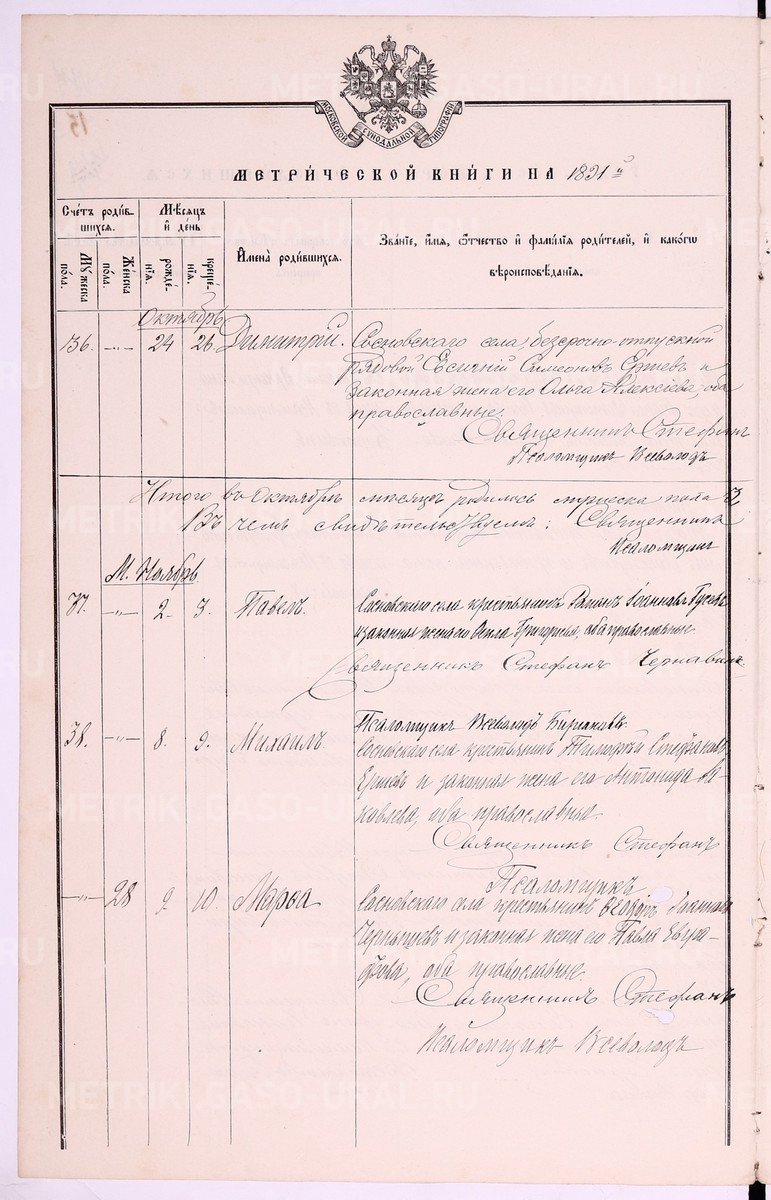 15
МОСКОВСКОЙ СѴНОДАЛЬНОЙ ТИПОГРАФІИ
МЕТРИ́ЧЕСКОЙ КНИ́ГИ НА 1891 й
Сче́тъ роди́в-
шихся.
Мꙋ́жеска
пола.
Же́нска
пола.
Мѣсѧцъ
и҆ де́нь
рожде́-
нїѧ.
креще́-
нїѧ.
И҆мена̀ роди́вшихся.
Зва́нїе, и҆́мѧ, ѻ҆́тчество и҆ фами́лїѧ роди́телей, и҆ како́гѡ
вѣроисповѣ́данїѧ.
Октябрь
36. —„— 24 26 Димитрій. Сосновскаго села безсрочно-отпускной
рядовой Симеоновъ и
законная жена его Ольга Алексіева, оба
православные.
Священникъ Стефанъ
Псаломщикъ Всеволодъ
Итого въ Октябрѣ мѣсяцѣ родилось мужеска пола
Въ чемъ свидѣтельствуемъ: Священникъ
Псаломщикъ
М. Ноябрь
37. —„— 2. 3. Павелъ. Сосновскаго села крестьянинъ Романъ Іоанновъ Гусевъ
и законная жена его Григорьева, оба православные.
Священникъ Стефанъ Чернавинъ.
Псаломщикъ Всеволодъ Бирюковъ.
38. —„— 8. 9. Михаилъ. Сосновскаго села крестьянинъ Тимофей Стефановъ
и законная жена его Антонида Я-
ковлева, оба православные.
Священникъ Стефанъ
Псаломщикъ
—„— 28 9 10. Марѳа Сосновскаго села крестьянинъ
и законная жена его Павла Евгра-
фова, оба православные.
Священникъ Стефанъ
Псаломщикъ Всеволодъ
METRIKI.GASO-URAL.RU